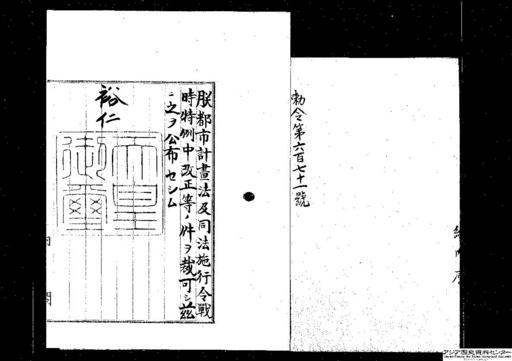 勅令第六百七十一號
朕都市計畫法及同法施行令戰
時特例中改正等ノ件ヲ裁可シ茲
ニ之ヲ公布セシム
裕仁
天皇
御璽
アジア歴史資料センター